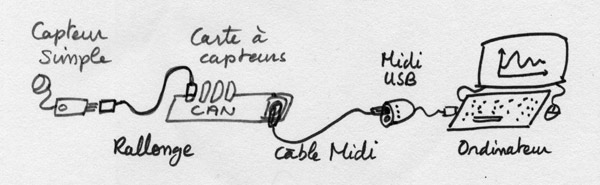 Capteur
Simple
Carte à
capteurs
Midi
USB
CAN
Rallonge
câble Midi
Ordinateur